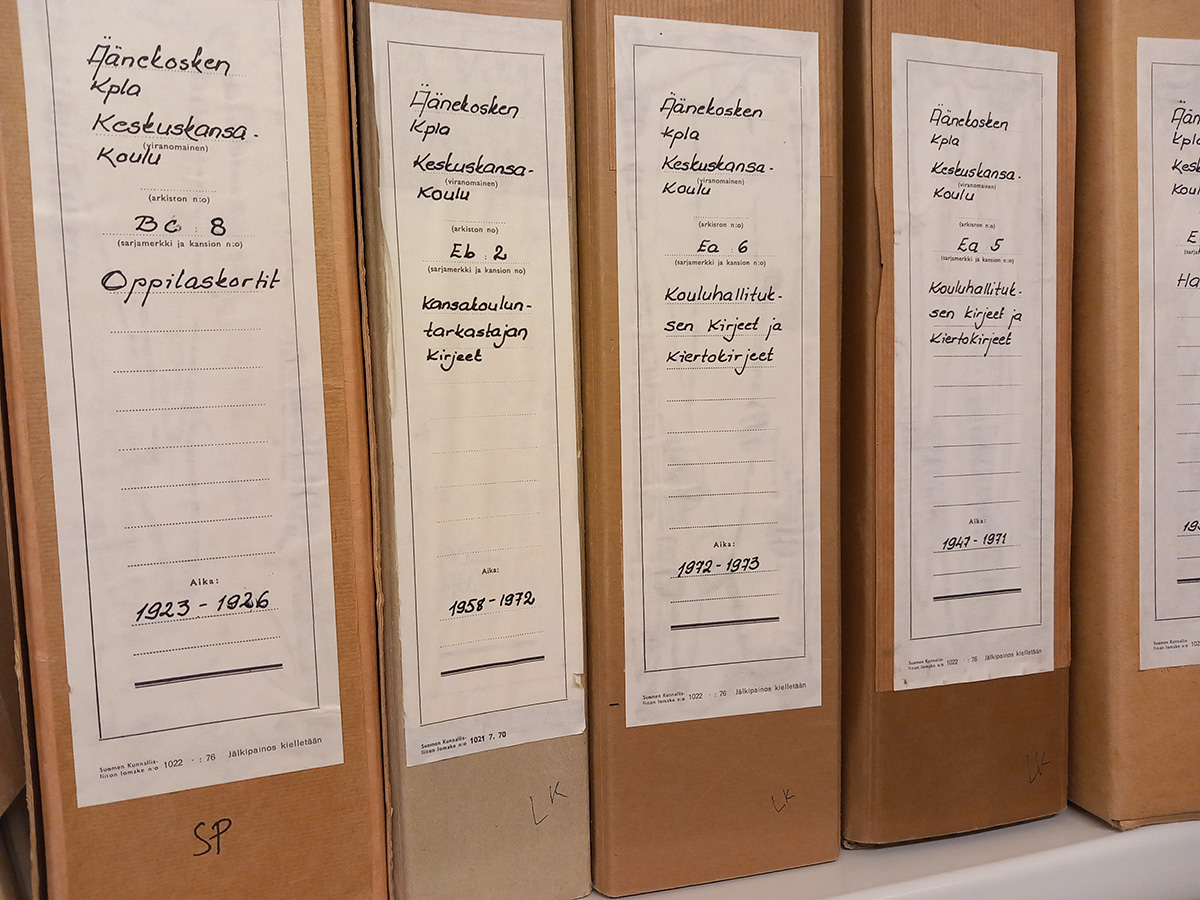 Äänekosken
Kpla
Keskuskansa-
(viranomainen)
Koulu
(arkiston n:o)
Bc : 8
(sarjamerkki ja kansion n:o)
Oppilaskortit
Aika:
1923 - 1926
Suomen Kunnallis-
liiton lomake n:o 1022 : 76 Jälkipainos kielletään
SP
Äänekosken
Kpla
Keskuskansa-
(viranomainen)
Koulu
(arkiston no)
Eb : 2
(sarjamerkki ja kansion no)
Kansakoulun-
tarkastajan
Kirjeet
Aika:
1958 - 1972
Suomen Kunnallis-
liiton lomake n:o 1021 7. 70
LK
Äänekosken
Kpla
Keskuskansa-
(viranomainen)
Koulu
(arkiston n:o)
Ea : 6
(sarjamerkki ja kansion n:o)
Kouluhallituk-
sen Kirjeet ja
Kiertokirjeet
Aika:
1972 - 1973
Suomen Kunnallis-
liiton lomake n:o 1022 : 76 Jälkipainos kielletään
LK
Äänekosken
Kpla
Keskuskansa-
(viranomainen)
Koulu
(arkiston n:o)
Ea 5
(sarjamerkki ja kansion n:o)
Kouluhallituk-
sen Kirjeet ja
Kiertokirjeet
Aika:
1947 - 1971
Suomen Kunnallis-
liiton lomake n:o 1022 : 76 Jälkipainos kielletään
LK
Kpla
E
Ha
Suomen Kunnallis-
liiton lomake n:o 1022